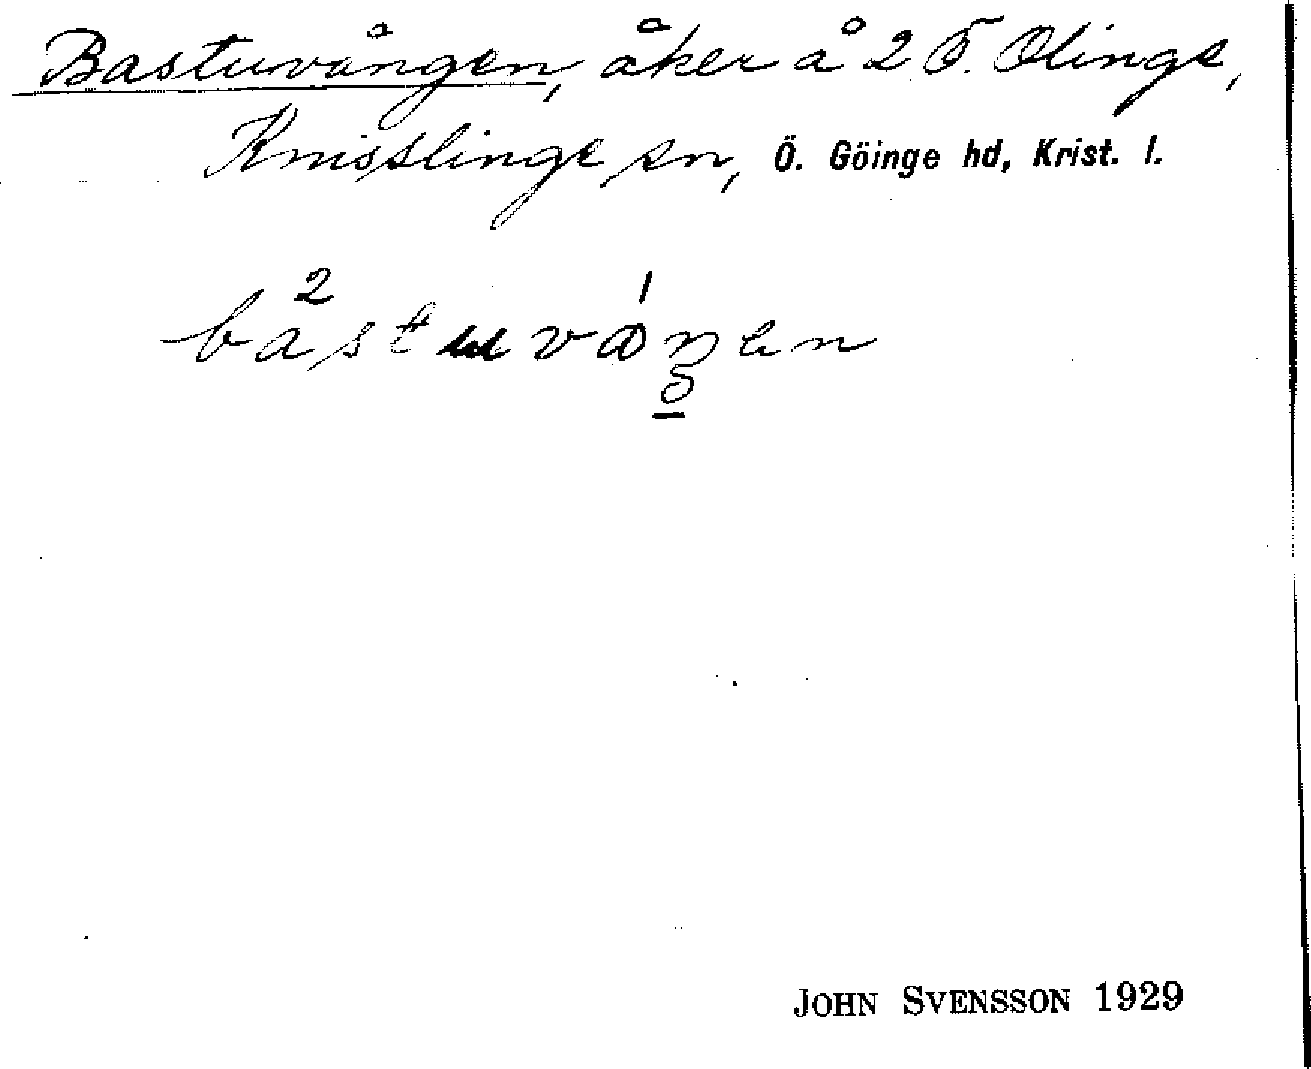 Bastuvången, åker å 2 Ö. Olinge,
Knisslinge sn, Ö. Göinge hd, Krist. l.
JOHN SVENSSON 1929